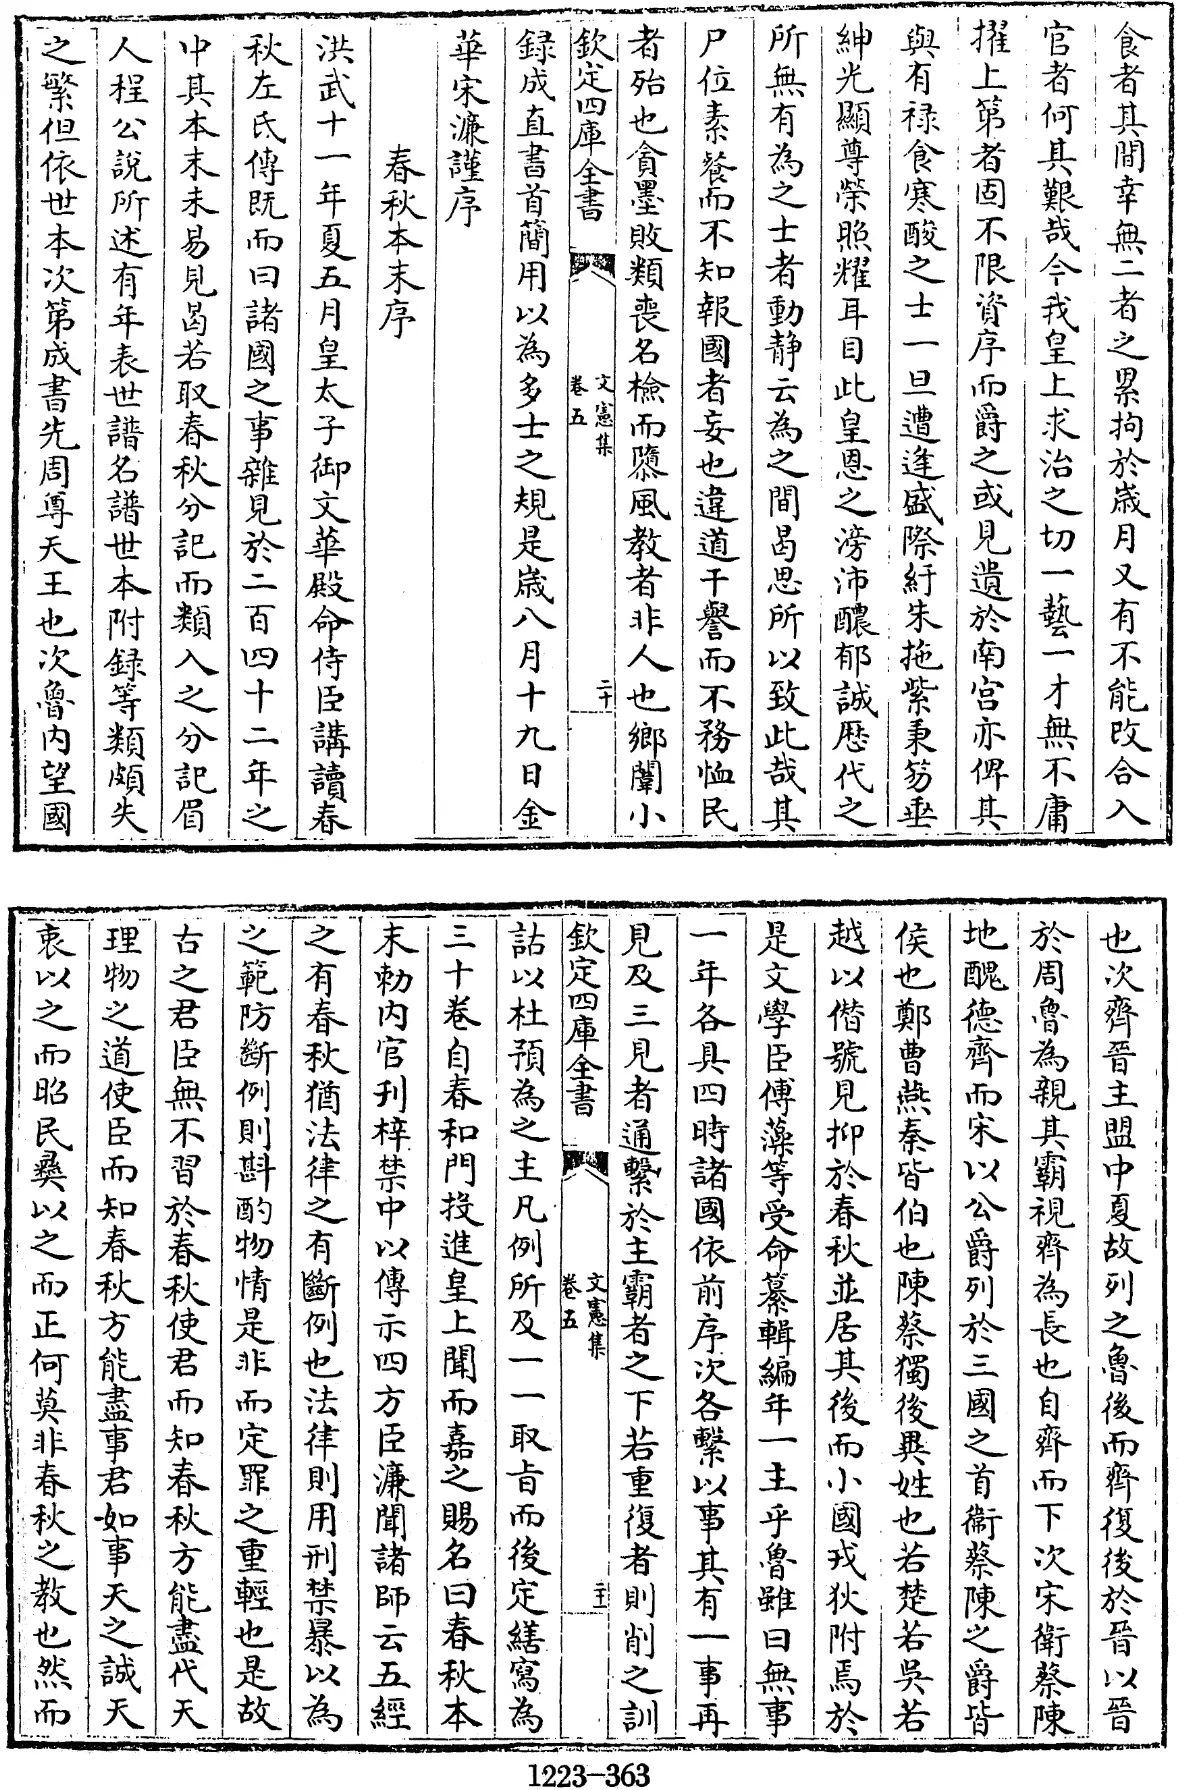 食者其間幸無二者之累拘於嵗月又有不能改合入
官者何其艱哉今我皇上求治之切一藝一才無不庸
擢上第者固不限資序而爵之或見遺於南宫亦俾其
與有禄食寒酸之士一旦遭逢盛際紆朱拖紫秉笏垂
紳光顯尊榮照耀耳目此皇恩之滂沛醲郁誠歴代之
所無有為之士者動静云為之間曷思所以致此哉其
尸位素餐而不知報國者妄也違道干譽而不務恤民
者殆也貪墨敗類喪名檢而隳風教者非人也鄉闈小
欽定四庫全書
文憲集
卷五
二十
録成直書首簡用以為多士之規是嵗八月十九日金
華宋濂謹序
春秋本末序
洪武十一年夏五月皇太子御文華殿命侍臣講讀春
秋左氏傳既而曰諸國之事雜見於二百四十二年之
中其本末未易見曷若取春秋分記而類入之分記眉
人程公説所述有年表世譜名譜世本附録等類頗失
之繁但依世本次第成書先周尊天王也次魯内望國
也次齊晉主盟中夏故列之魯後而齊復後於晉以晉
於周魯為親其霸視齊為長也自齊而下次宋衛蔡陳
地醜德齊而宋以公爵列於三國之首衞蔡陳之爵皆
侯也鄭曹燕秦皆伯也陳蔡獨後異姓也若楚若吳若
越以僭號見抑於春秋並居其後而小國戎狄附焉於
是文學臣傅藻等受命纂輯編年一主乎魯雖曰無事
一年各具四時諸國依前序次各繫以事其有一事再
見及三見者通繫於主霸者之下若重復者則削之訓
欽定四庫全書
文憲集
卷五
二十一
詁以杜預為之主凡例所及一一取旨而後定繕寫為
三十卷自春和門投進皇上聞而嘉之賜名曰春秋本
末勅内官刋梓禁中以傳示四方臣濂聞諸師云五經
之有春秋猶法律之有斷例也法律則用刑禁暴以為
之範防斷例則斟酌物情是非而定罪之重輕也是故
古之君臣無不習於春秋使君而知春秋方能盡代天
理物之道使臣而知春秋方能盡事君如事天之誠天
衷以之而昭民彞以之而正何莫非春秋之教也然而
1223-363